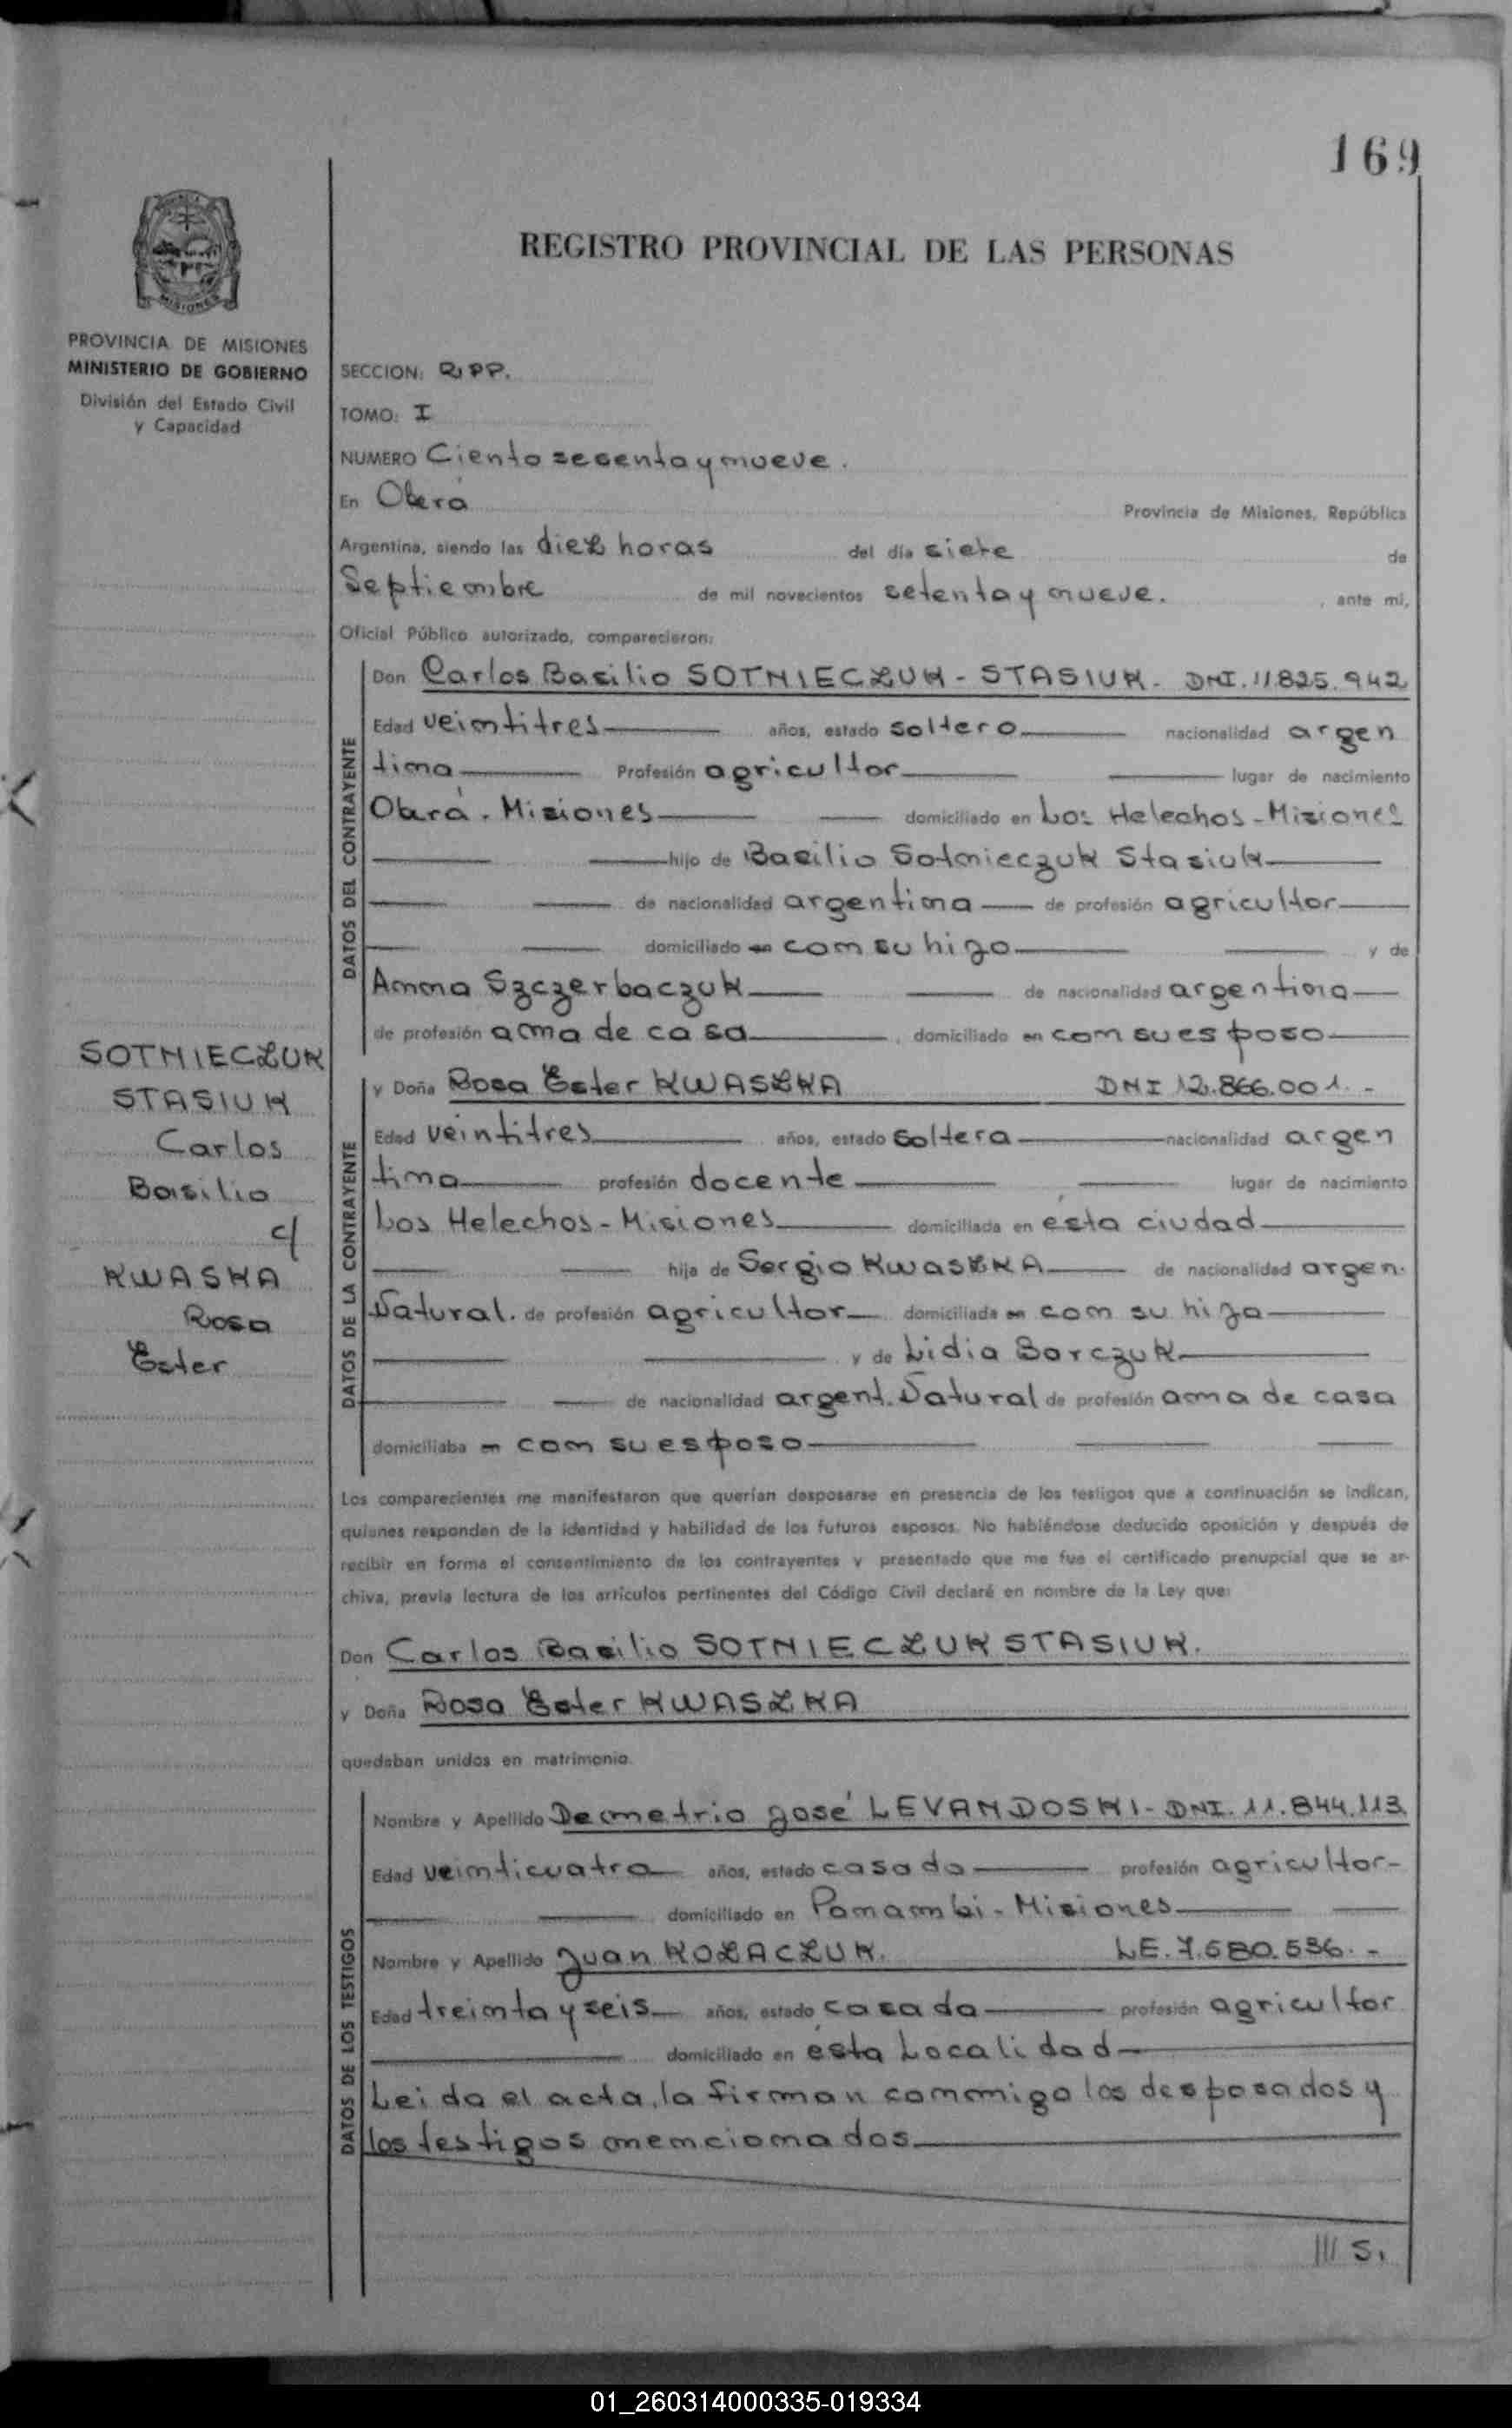 169
REGISTRO PROVINCIAL DE LAS PERSONAS
MISIONES
PROVINCIA DE MISIONES
MINISTERIO DE GOBIERNO
División del Estado Civil
y Capacidad
SECCION: R.PP.
TOMO: I
NUMERO Ciento sesenta y nueve.
En Oberá Provincia de Misiones, República
Argentina, siendo las diez horas del día siete de
Septiembre de mil novecientos setenta y nueve. , ante mi,
Oficial Público autorizado, comparecieron:
DATOS DEL CONTRAYENTE
Don Carlos Basilio SOTNIECZUK - STASIUK. DNI. 11.825.942
Edad veintitres años, estado soltero nacionalidad argen
tina Profesión agricultor lugar de nacimiento
Oberá. Misiones domiciliado en Los Helechos - Misiones
hijo de Basilio Sotnieczuk Stasiuk
de nacionalidad argentina de profesión agricultor
domiciliado en con su hijo y de
Anna Szczerbaczuk de nacionalidad argentina
de profesión ama de casa , domiciliado en con su esposo
SOTNIECZUK
STASIUK
Carlos
Basilio
c/
KWASKA
Rosa
Ester
DATOS DE LA CONTRAYENTE
y Doña Rosa Ester KWASZKA DNI 12.866.001. -
Edad veintitres años, estado soltera nacionalidad argen
tina profesión docente lugar de nacimiento
Los Helechos - Misiones domiciliada en esta ciudad
hija de Sergio KwasZKA de nacionalidad argen.
Natural. de profesión agricultor domiciliada en con su hija
y de Lidia Borczuk
de nacionalidad argent. Natural de profesión ama de casa
domiciliaba en con su esposo
Los comparecientes me manifestaron que querían desposarse en presencia de los testigos que a continuación se indican,
quienes responden de la identidad y habilidad de los futuros esposos. No habiéndose deducido oposición y después de
recibir en forma el consentimiento de los contrayentes y presentado que me fue el certificado prenupcial que se ar-
chiva, previa lectura de los artículos pertinentes del Código Civil declaré en nombre de la Ley que:
Don Carlos Basilio SOTNIECZUK STASIUK.
y Doña Rosa Ester KWASZKA
quedaban unidos en matrimonio.
DATOS DE LOS TESTIGOS
Nombre y Apellido Demetrio José LEVANDOSKI - DNI. 11.844.113
Edad veinticuatro años, estado casado profesión agricultor -
domiciliado en Panambi - Misiones
Nombre y Apellido Juan KOZACZUK. LE. 7.580.536. -
Edad treinta y seis años, estado casado profesión agricultor
domiciliado en esta Localidad
Leida el acta, la firman conmigo los desposados y
los testigos mencionados
/// S.
01_260314000335-019334